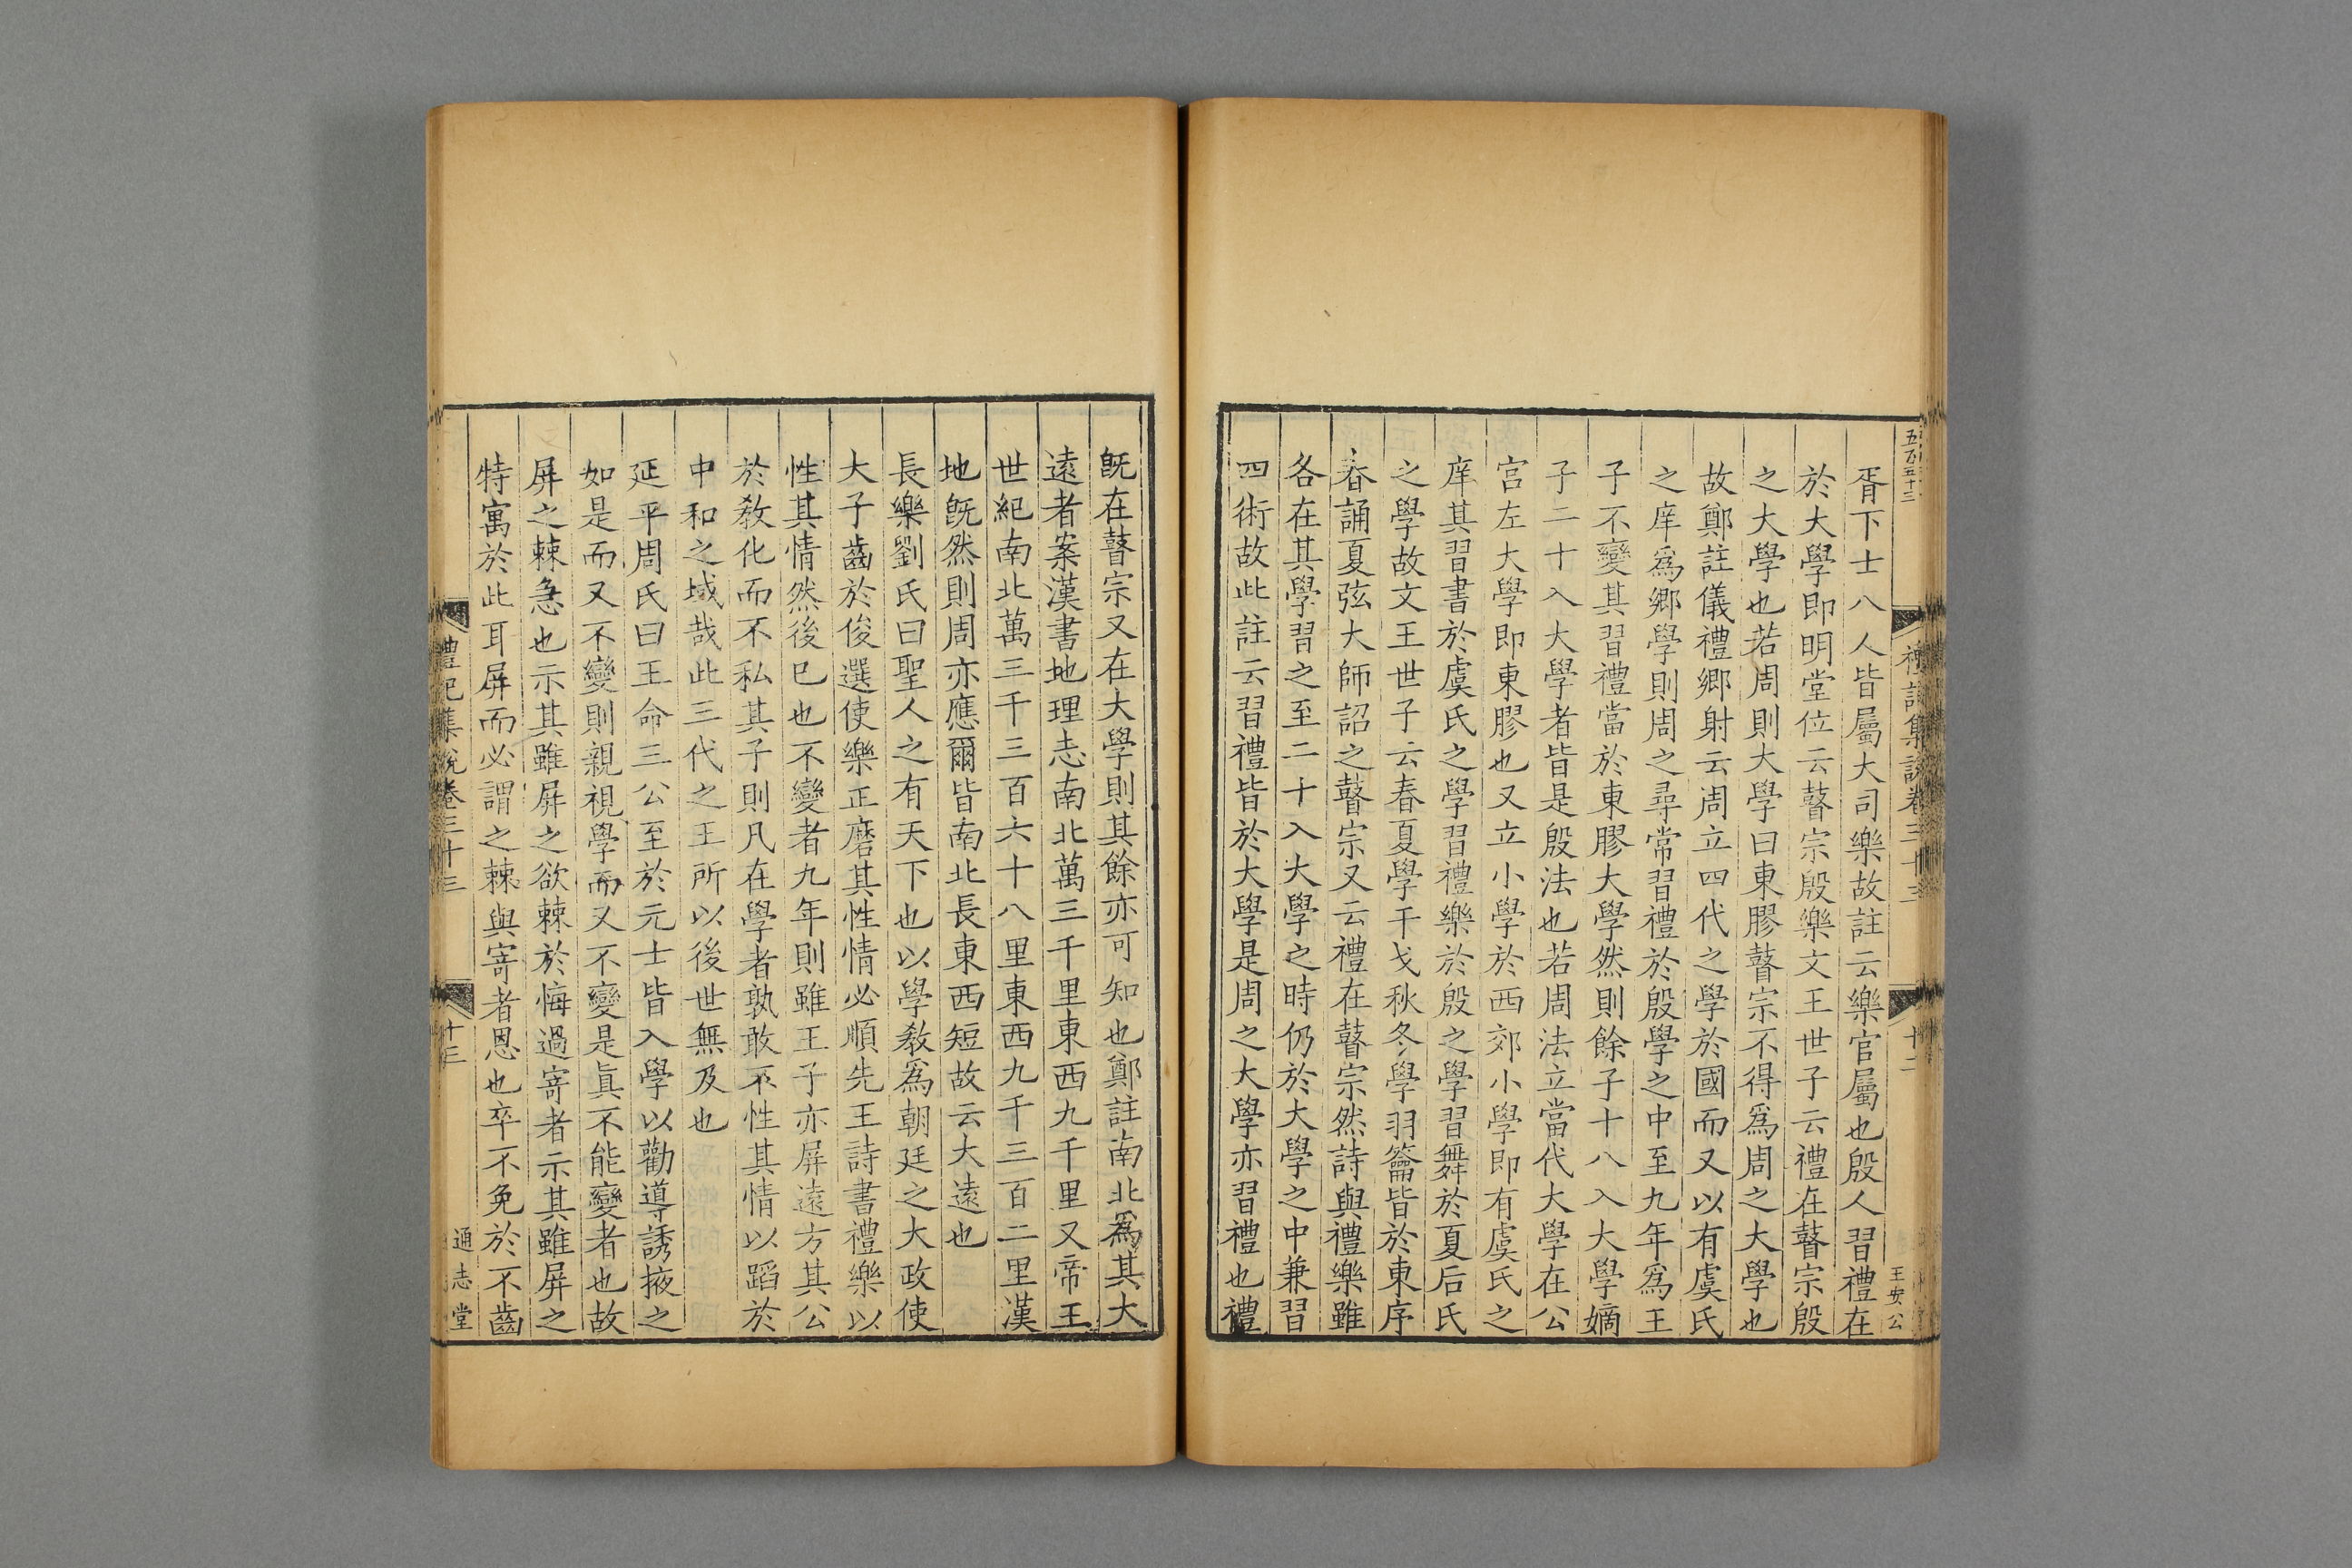 五百五十三
禮記集說卷三十三
十二
王安公
胥下士八人皆屬大司樂故註云樂官屬也殷人習禮在
於大學即明堂位云瞽宗殷樂文王世子云禮在瞽宗殷
之大學也若周則大學曰東膠瞽宗不得爲周之大學也
故鄭註儀禮鄉射云周立四代之學於國而又以有虞氏
之庠爲鄉學則周之尋常習禮於殷學之中至九年爲王
子不變其習禮當於東膠大學然則餘子十八入大學嫡
子二十入大學者皆是殷法也若周法立當代大學在公
宮左大學即東膠也又立小學於西郊小學即有虞氏之
庠其習書於虞氏之學習禮樂於殷之學習舞於夏后氏
之學故文王世子云春夏學干戈秋冬學羽籥皆於東序
春誦夏弦大師詔之瞽宗又云禮在瞽宗然詩與禮樂雖
各在其學習之至二十入大學之時仍於大學之中兼習
四術故此註云習禮皆於大學是周之大學亦習禮也禮
既在瞽宗又在大學則其餘亦可知也鄭註南北爲其大
遠者案漢書地理志南北萬三千里東西九千里又帝王
世紀南北萬三千三百六十八里東西九千三百二里漢
地既然則周亦應爾皆南北長東西短故云大遠也
長樂劉氏曰聖人之有天下也以學教爲朝廷之大政使
大子齒於俊選使樂正磨其性情必順先王詩書禮樂以
性其情然後已也不變者九年則雖王子亦屏遠方其公
於教化而不私其子則凡在學者孰敢不性其情以蹈於
中和之域哉此三代之王所以後世無及也
延平周氏曰王命三公至於元士皆入學以勸導誘掖之
如是而又不變則親視學而又不變是眞不能變者也故
屏之棘急也示其雖屏之欲棘於悔過寄者示其雖屏之
特寓於此耳屏而必謂之棘與寄者恩也卒不免於不齒
禮記集說卷三十三
十三
通志堂